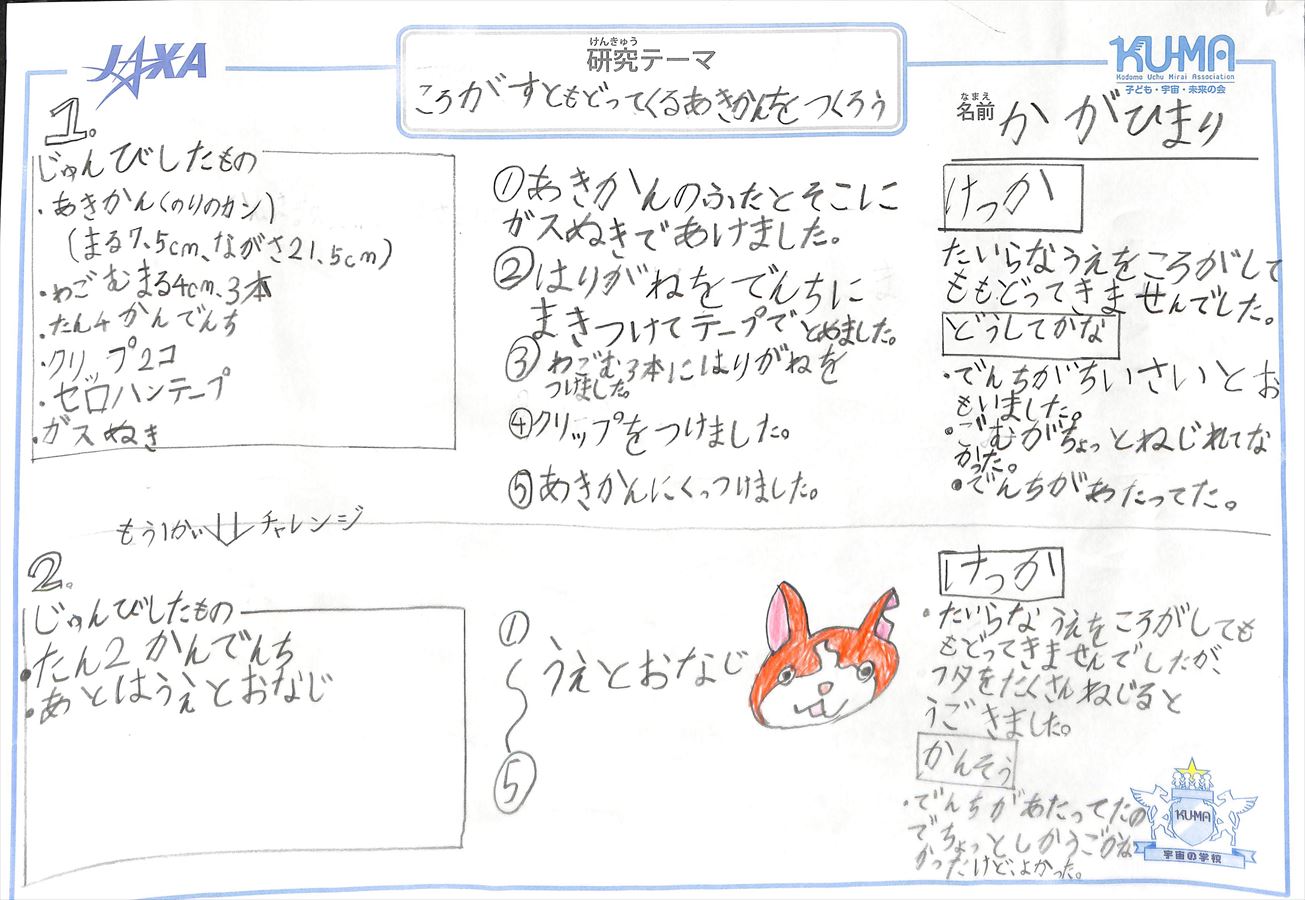 JAXA
けんきゅう
研究テーマ
ころがすともどってくるあきかんをつくろう
KU-MA
Kodomo Uchu Mirai Association
子ども・宇宙・未来の会
なまえ
名前 かがひまり
1.
じゅんびしたもの
・あきかん(のりのカン)
(まる7.5cm、ながさ21.5cm)
・わごむまる4cm、3本
・たん4かんでんち
・クリップ2コ
・ゼロハンテープ
・ガスぬき
①あきかんのふたとそこに
ガスぬきであけました。
②はりがねをでんちに
まきつけてテープでとめました。
③わごむ3本にはりがねを
つけました。
④クリップをつけました。
⑤あきかんにくっつけました。
けっか
たいらなうえをころがして
ももどってきませんでした。
どうしてかな
・でんちがちいさいとお
もいました。
・ごむがちょっとねじれてな
かった。
・でんちがあたってた。
もう1かい チャレンジ
2.
じゅんびしたもの
・たん2かんでんち
・あとはうえとおなじ
①
〜
⑤
うえとおなじ
けっか
・たいらなうえをころがしても
もどってきませんでしたが、
フタをたくさんねじると
うごきました。
かんそう
・でんちがあたってたの
でちょっとしかうごかな
かったけど、よかった。
KU-MA
宇宙の学校